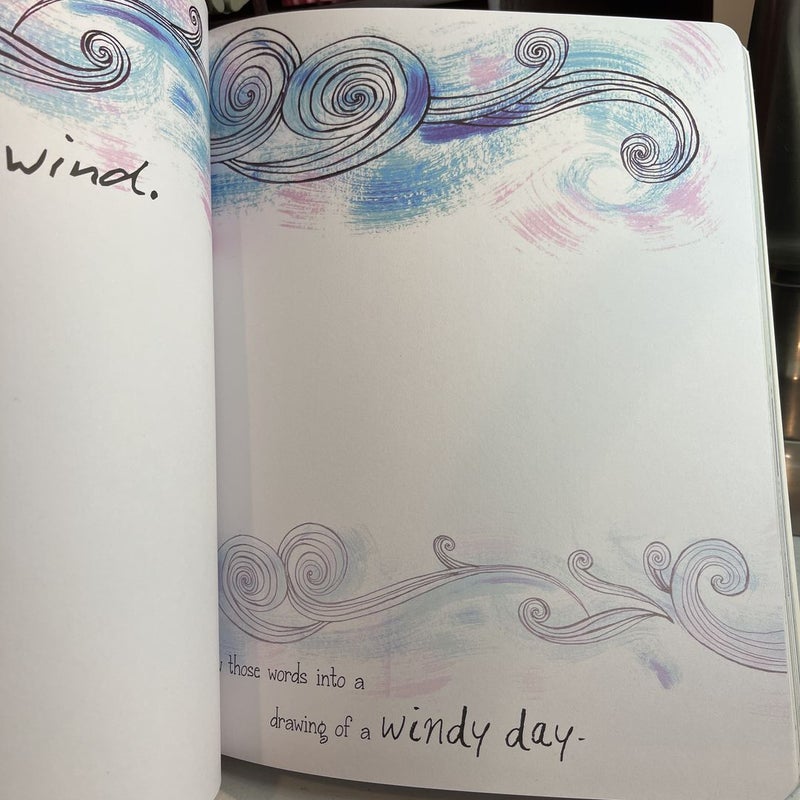 wind.
those words into a
drawing of a windy day.